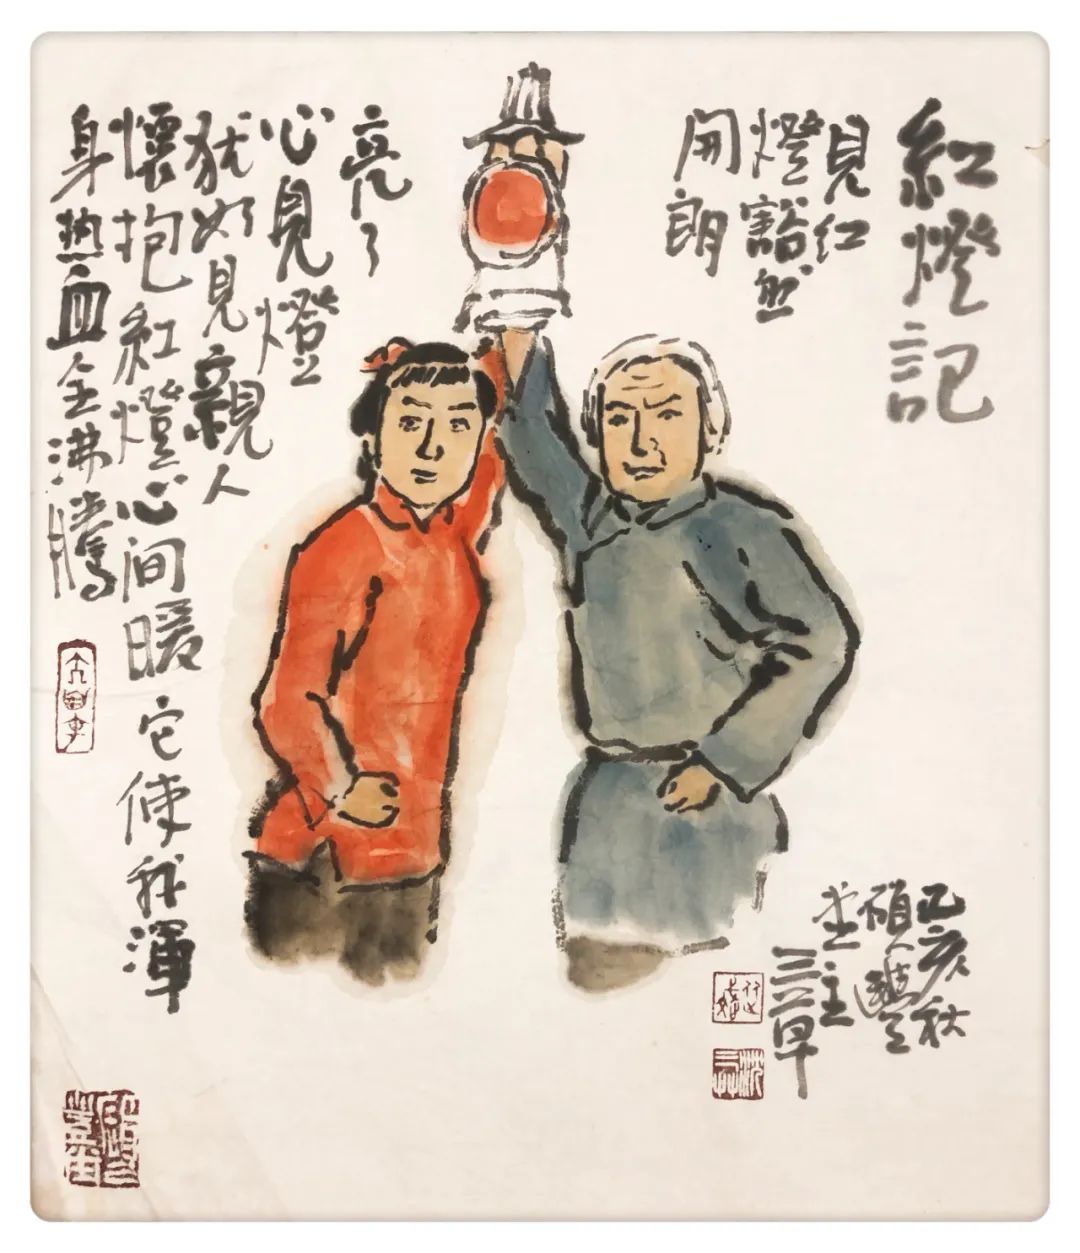 紅燈記
見红
燈豁然
開朗
亮了
心見燈
犹如見親人
懷抱紅燈心间暖它使我渾
身热血全沸騰
己亥秋
碩豐
堂主
三章